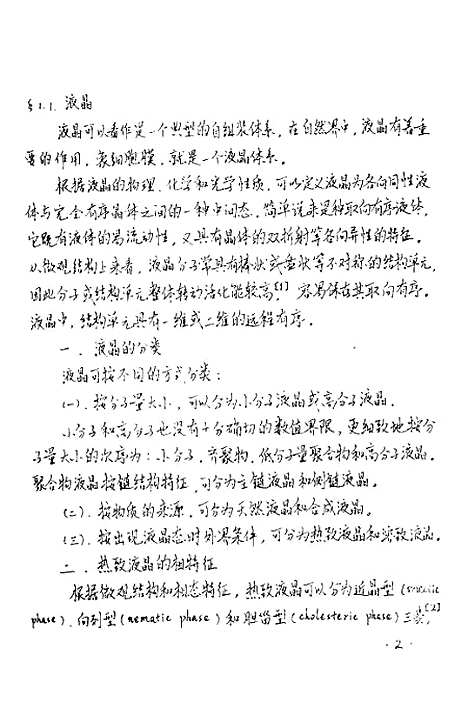 §1.1. 液晶
液晶可以看作是一个典型的自组装体系，在自然界中，液晶有着重
要的作用，象细胞膜，就是一个液晶体系。
根据液晶的物理、化学和光学性质，可以定义液晶为各向同性液
体与完全有序晶体之间的一种中间态，简单说来是种取向有序液体，
它既有液体的易流动性，又具有晶体的双折射等各向异性的特征。
从微观结构上来看，液晶分子常具有棒状或盘状等不对称的结构单元，
因此分子或结构单元整体转动活化能较高[1]，容易保持其取向有序。
液晶中，结构单元具有一维或二维的远程有序。
一、液晶的分类
液晶可按不同的方式分类：
(一)、按分子量大小，可以分为小分子液晶或高分子液晶。
小分子和高分子也没有十分确切的数值界限，更细致地按分
子量大小的次序为：小分子、齐聚物、低分子量聚合物和高分子液晶。
聚合物液晶按链结构特征，可分为主链液晶和侧链液晶。
(二)、按物质的来源，可分为天然液晶和合成液晶。
(三)、按出现液晶态时外界条件，可分为热致液晶和溶致液晶。
二、热致液晶的相特征
根据微观结构和相态特征，热致液晶可以分为近晶型 (smectic
phase)、向列型 (nematic phase) 和胆甾型 (cholesteric phase) 三类[2]，
·2·